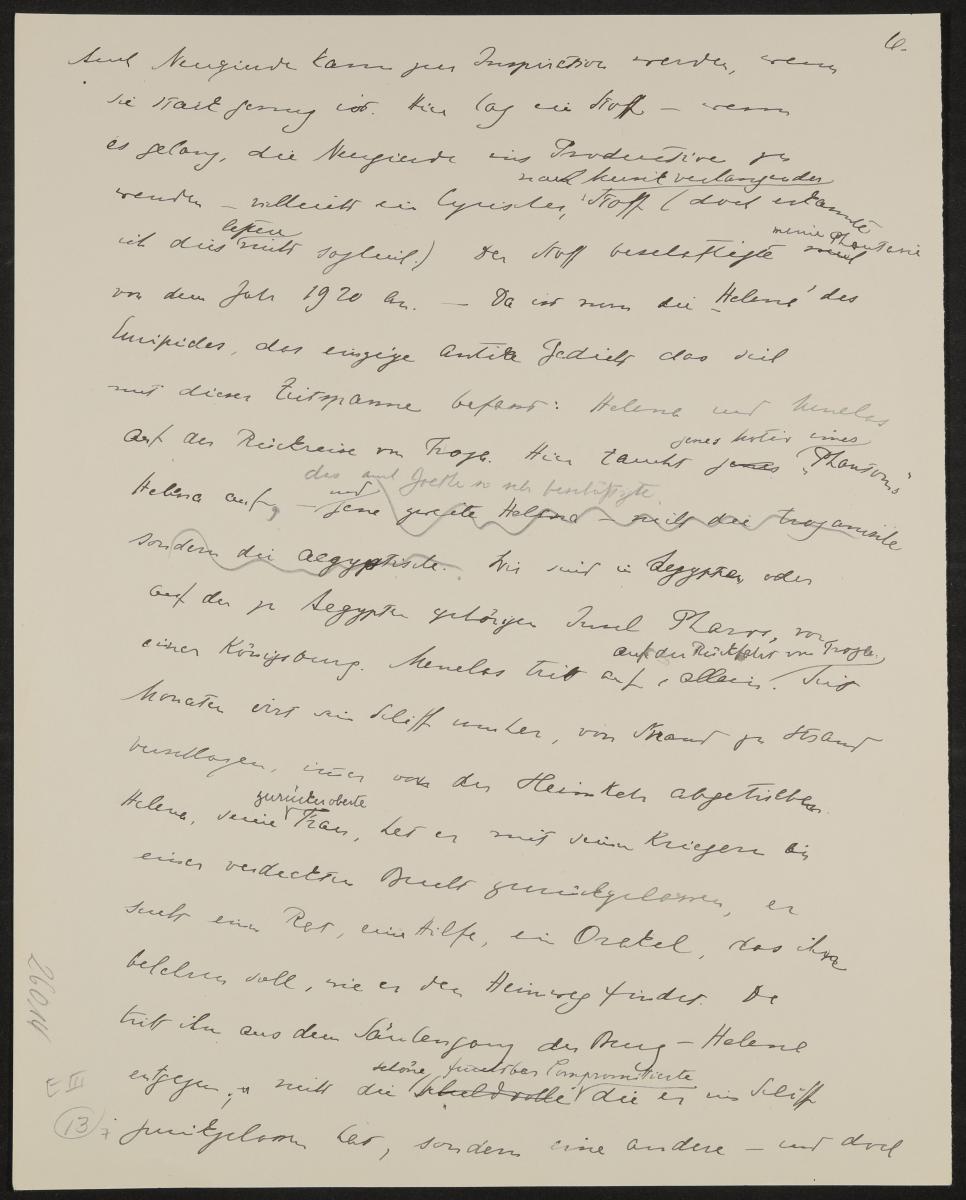 6.
Auch Neugierde kann zur Inspiration werden, wenn
sie stark genug ist. Hier lag ein Stoff – wenn
es gelang, die Neugierde ins Productive zu
nach Musik verlangender
wenden – vielleicht ein lyrischer, Stoff (doch erkannte
letztere meine Phantasie
ich dies nicht sogleich.) Der Stoff beschäftigte mich
von dem Jahr 1920 an. – Da ist nun die 'Helena' des
Euripides, das einzige antike Gedicht das sich
mit dieser Zeitspanne befasst: Helena und Menelas
jenes Motiv eines
auf der Rückreise von Troja. Hier taucht jenes "Phantoms"
das auch Goethe so sehr beschäftigte.
und
Helena auf, – jene zweite Helena – nicht die trojanische
sondern die aegyptische. Wir sind in Aegypten, oder
auf der zu Aegypten gehörigen Insel Pharos, vor
auf der Rückfahrt von Troja.
einer Königsburg. Menelas tritt auf, allein. Seit
Monaten irrt sein Schiff umher, von Strand zu Strand
verschlagen, immer von der Heimkehr abgetrieben.
zurückeroberte
Helena, seine Frau, hat er mit seinen Kriegern in
einer verdeckten Bucht zurückgelassen, er
sucht einen Rat, eine Hilfe, ein Orakel, das ihn
belehren soll, wie er den Heimweg findet. Da
tritt ihm aus dem Säulengang der Burg – Helena
schöne, furchtbar Compromittierte
entgegen, nicht die schuldvolle die er im Schiff
zurückgelassen hat, sondern eine andere – und doch
26014
E III
13
7